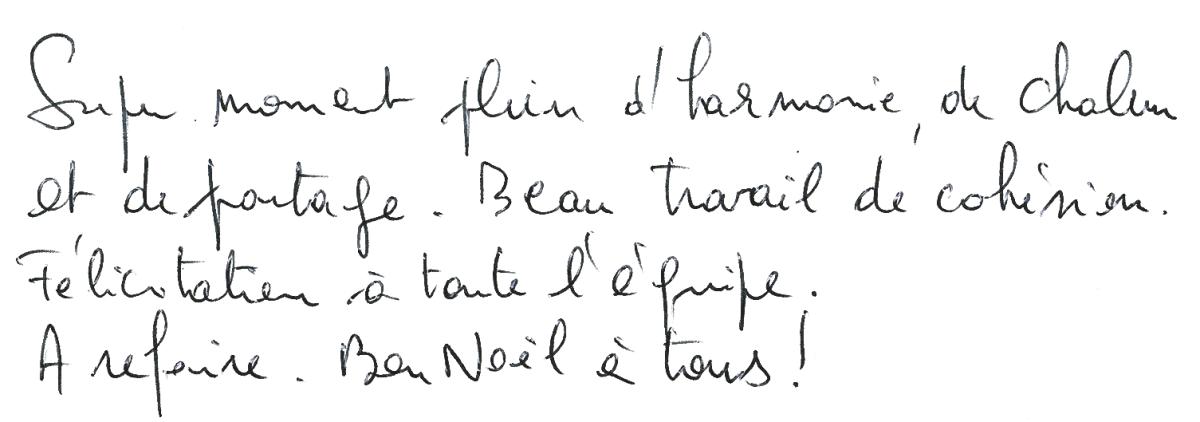 Super moment plein d'harmonie, de chaleur
et de partage. Beau travail de cohésion.
Félicitation à toute l'équipe.
A refaire. Bon Noël à tous !